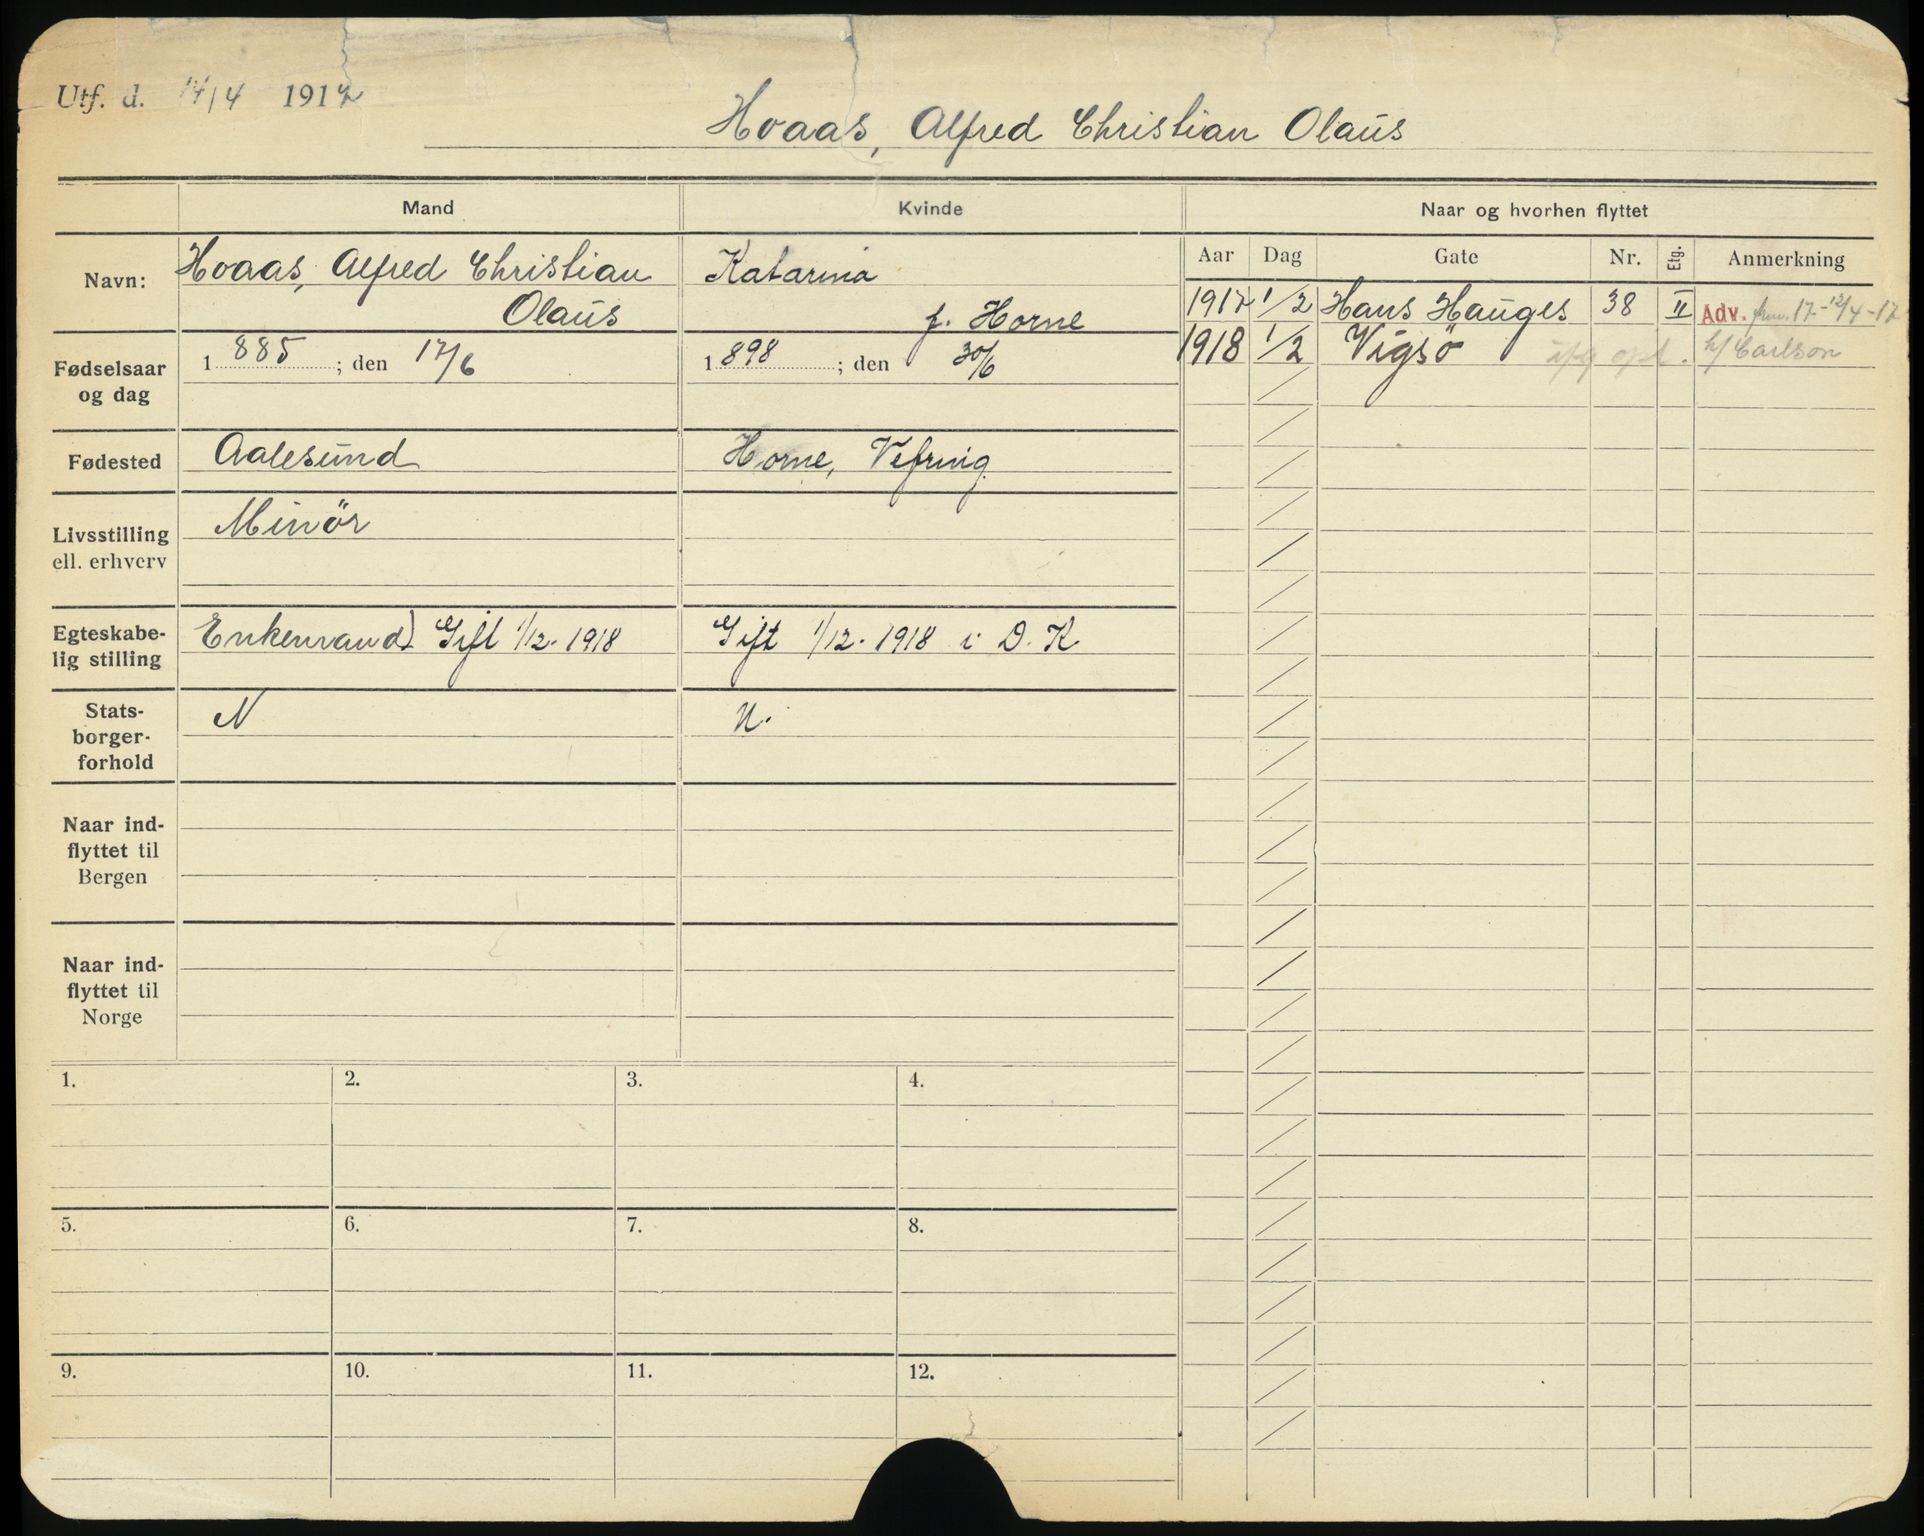 Utf. d. 14/4 1917
Hoaas, Alfred Christian Olaus
Mand
Kvinde
Naar og hvorhen flyttet
Aar Dag Gate Nr. Etg. Anmerkning
Navn:
Hoaas, Alfred Christian
Olaus
Katarina
f. Horne
1917 1/2 Hans Hauges 38 II Adv. 17-12/4-17
1918 1/2 Vigsö h/ Carlson
Fødselsaar
og dag
1885; den 17/6
1898; den 30/6
Fødested
Aalesund
Horne, Vefring.
Livsstilling
ell. erhverv
Minör
Egteskabe-
lig stilling
Enkemand) Gift 1/12. 1918
Gift 1/12. 1918 i D. K
Stats-
borger-
forhold
N
N.
Naar ind-
flyttet til
Bergen
Naar ind-
flyttet til
Norge
1. 2. 3. 4.
5. 6. 7. 8.
9. 10. 11. 12.